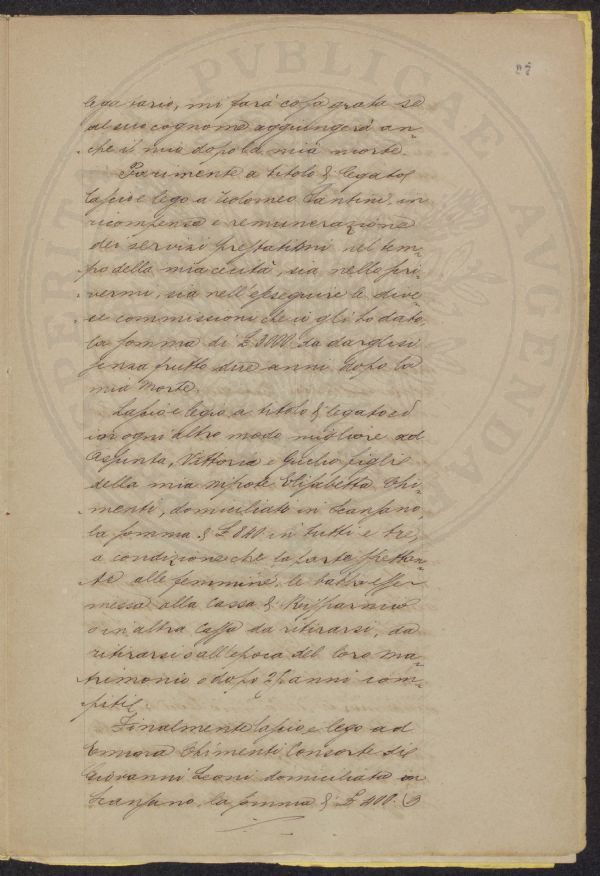 PVBLICAE
AVGENDAE
legatario, mi farà cosa grata se
al suo cognome aggiungerà an-
che il mio dopo la mia morte.
Parimente a titolo di legato
lascio e lego a Tolomeo Santini in
ricompensa e remunerazione
dei servizi prestatimi nel tem-
po della mia cecità, sia nello scri-
vermi, sia nell'eseguire le diver-
se commissioni che io gli ho dato,
la somma di £ 3000 da darglisi
senza frutto dieci anni dopo la
mia morte.
Lascio e lego a titolo di legato ed
in ogni altro modo migliore ad
Assunta, Vittoria e Giulio figli
della mia nipote Elisabetta Chi-
menti, domiciliati in Scansano,
la somma di £ 840 in tutti e tre,
a condizione che la parte spetten-
te alle femmine, le sarà esser
messa alla Cassa di Risparmio
o in altra Cassa da ritirarsi, da
ritirarsi o all'epoca del loro ma-
trimonio o dopo 25 anni com-
piti.
Finalmente lascio e lego ad
Emma Chimenti Consorte di
Giovanni Leoni domiciliata in
Scansano, la somma di £ 400. e